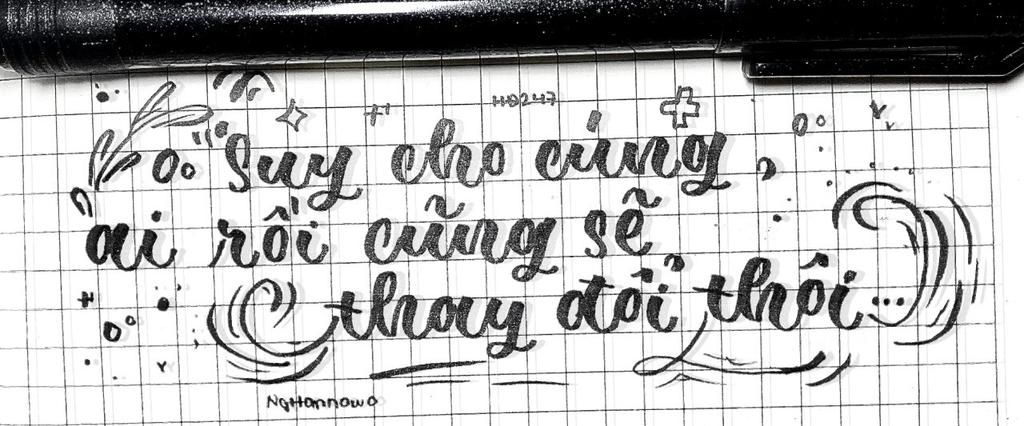 HĐ247
"Suy cho cùng,
ai rồi cũng sẽ
thay đổi thôi...
NgHannawo